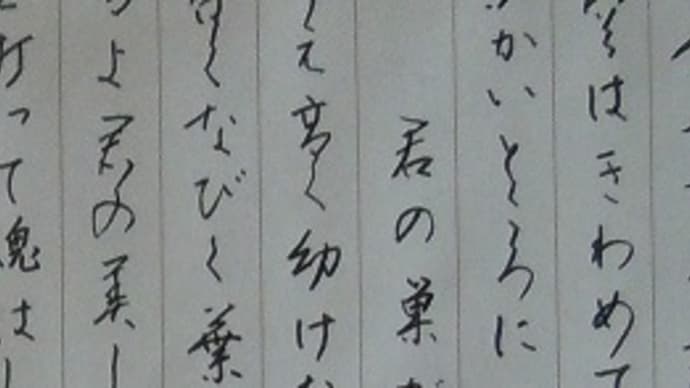 はきわめて
かいところに
君の巣
え高く幼け
なびく葉
よ君の美し
打って魂は